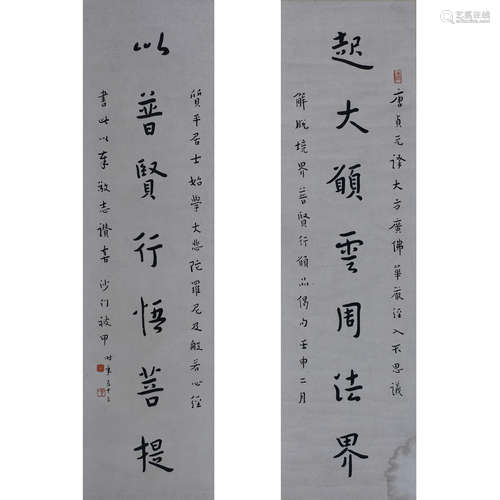 起大願雲周法界
唐貞元译大方廣佛華嚴經入不思議
解脫境界普賢行願品偈句壬申二月
以普賢行悟菩提
質平居士始學大悲陀羅尼及般若心經
書此以奉敬志讚喜 沙门被甲 时年五十三